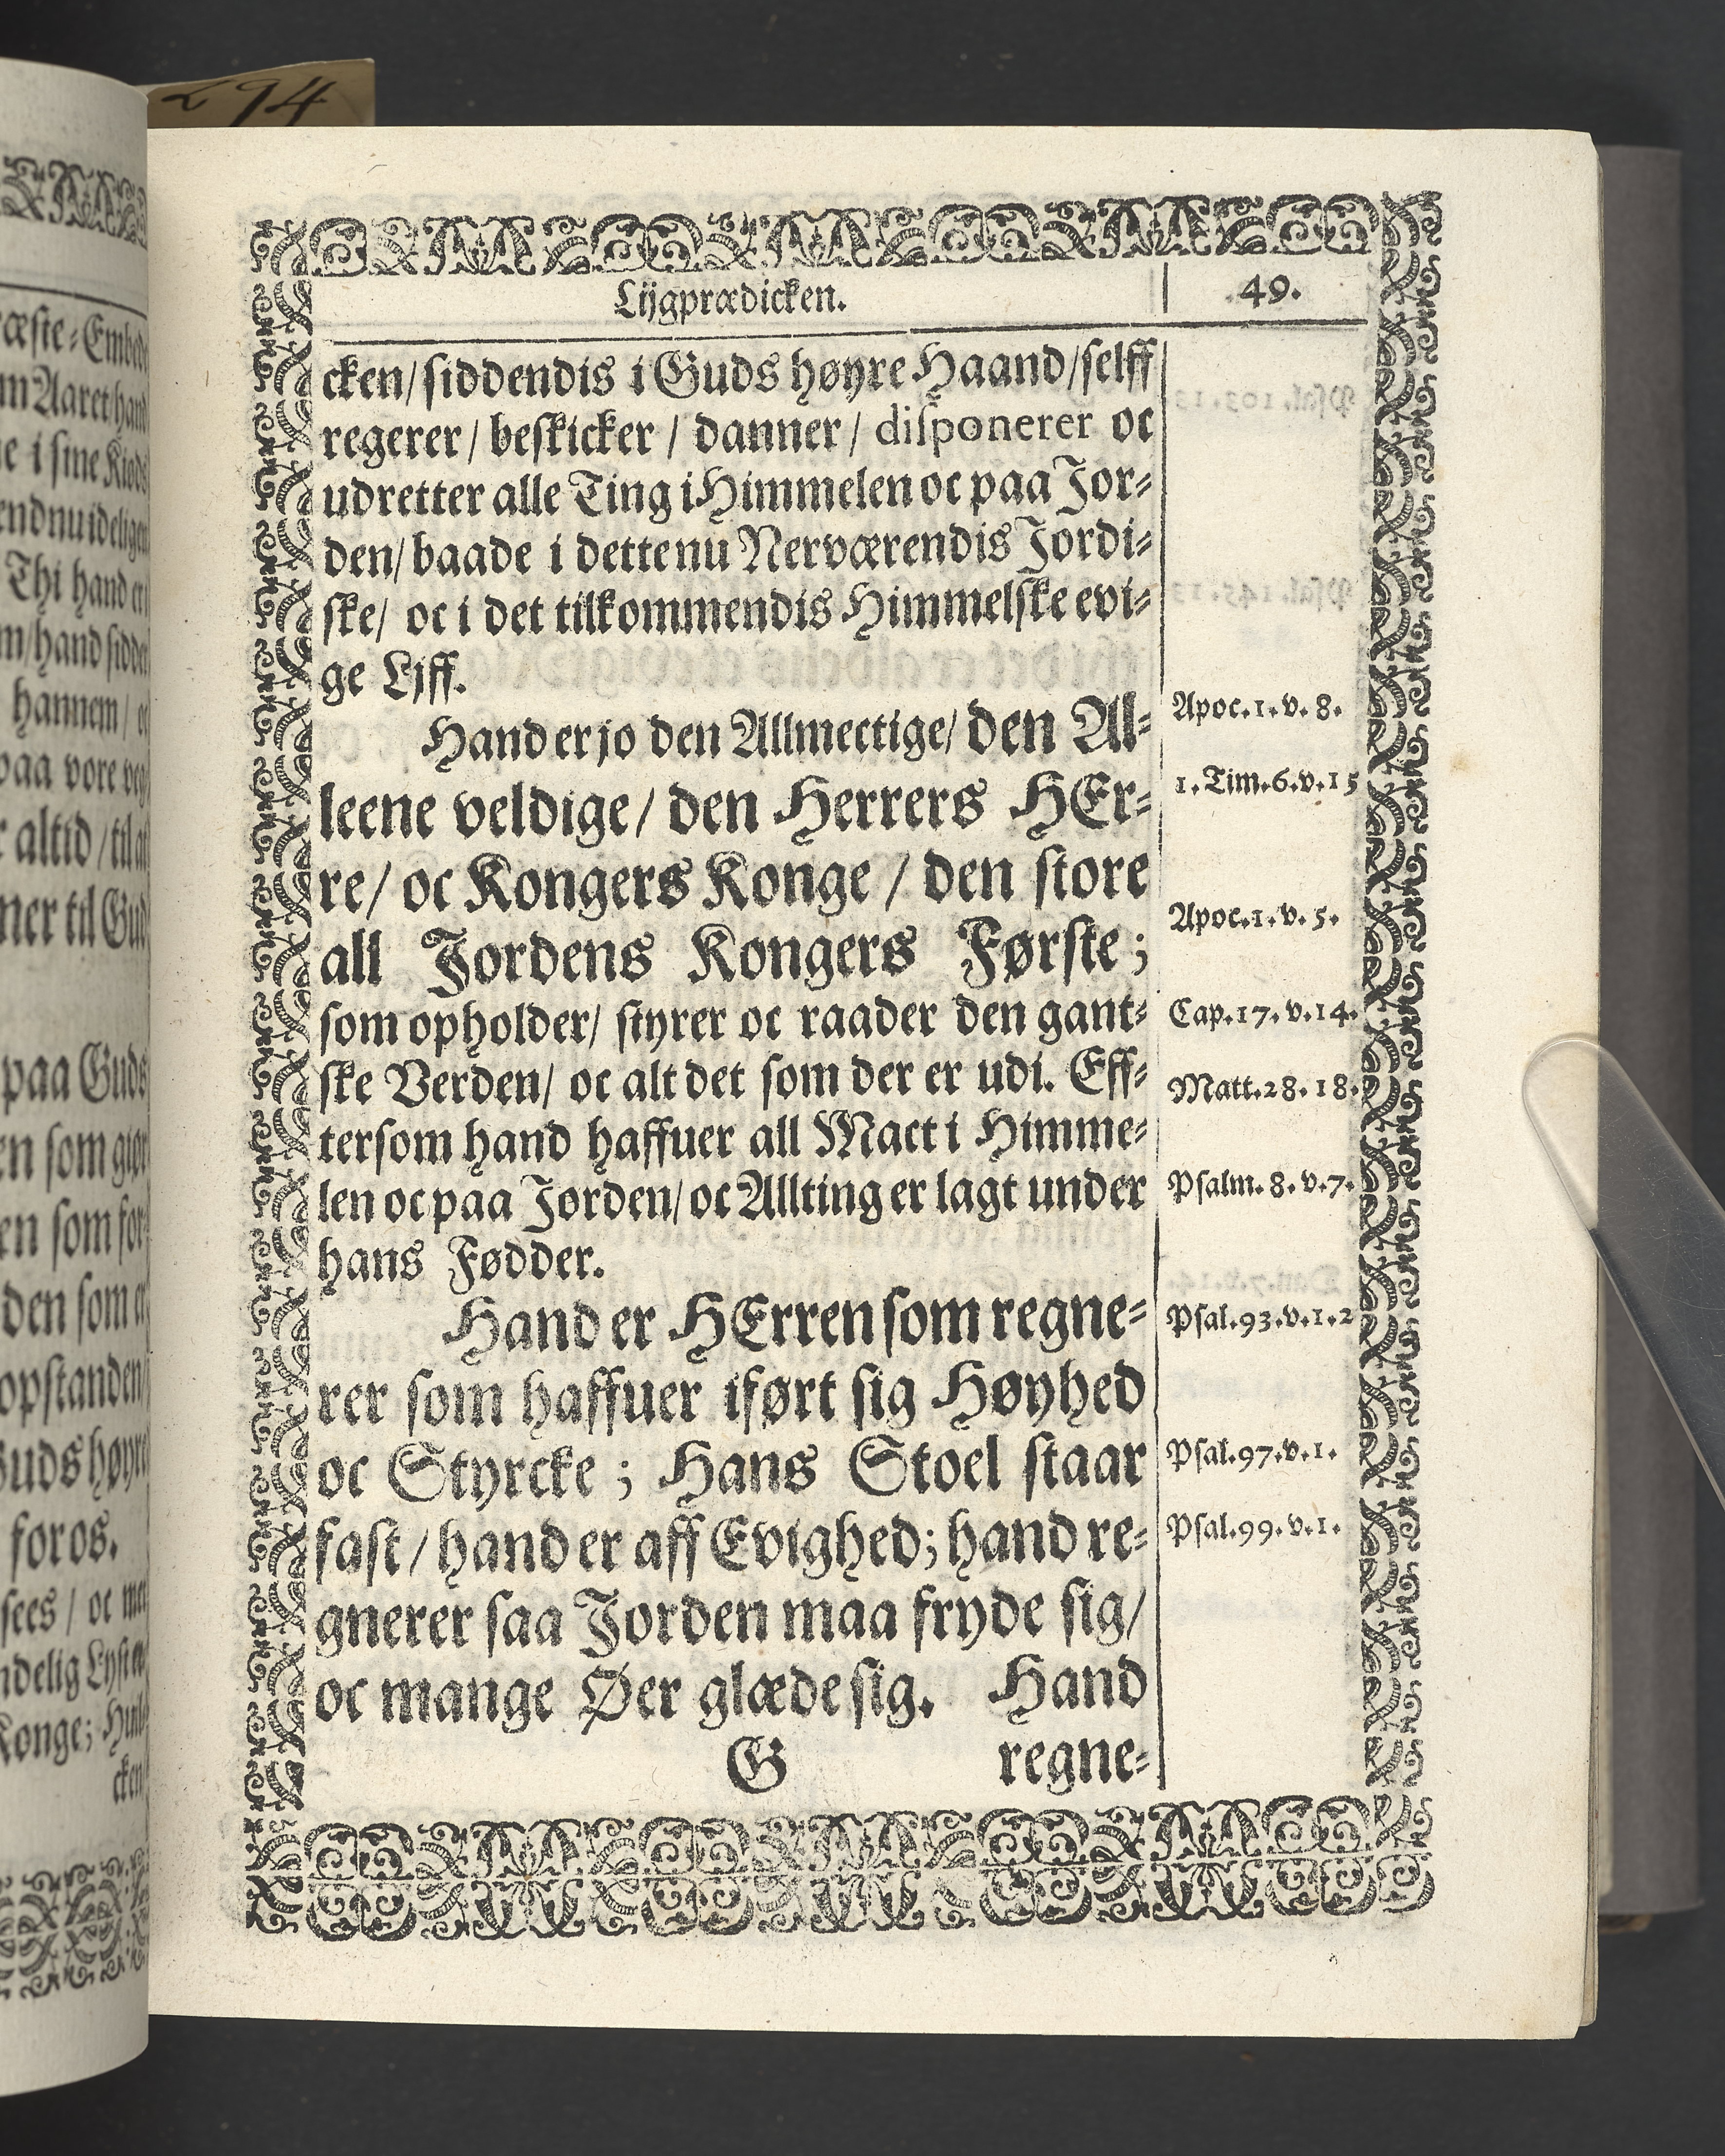 294
Lijgprædicken.
49.
cken/ siddendis i Guds høyre Haand/ selff
regerer/ beskicker / danner/ disponerer oc
udretter alle Ting i Himmelen oc paa Jor-
den/ baade i dette nu Nerværendis Jordi-
ske/ oc i det tilkommendis Himmelske evi-
ge Ljff.
Hand er jo den Allmectige/ den Al-
leene veldige/ den Herrers HEr-
re/ oc Kongers Konge / den store
all Jordens Kongers Første;
som opholder/ styrer oc raader den gant-
ske Verden/ oc alt det som der er udi. Eff-
tersom hand haffuer all Mact i Himme-
len oc paa Jorden/ oc Allting er lagt under
hans Fødder.
Hand er HErren som regne-
rer som haffuer iført sig Høyhed
oc Styrcke ; Hans Stoel staar
fast / hand er aff Evighed; hand re-
gnerer saa Jorden maa fryde sig/
oc mange Øer glæde sig. Hand
G
regne-
Apoc.1.v.8.
1.Tim.6.v.15
Apoc.1.v.5.
Cap.17.v.14.
Matt.28.18.
Psalm.8.v.7.
Psal.93.v.1.2
Psal.97.v.1.
Psal.99.v.1.
Thi hand er
hannem/
paa vore
altid / til
ner til Gud
paa Guds
en som
en som for
den som
opstanden
Guds høyre
for os.
sees / oc
Konge;
cken